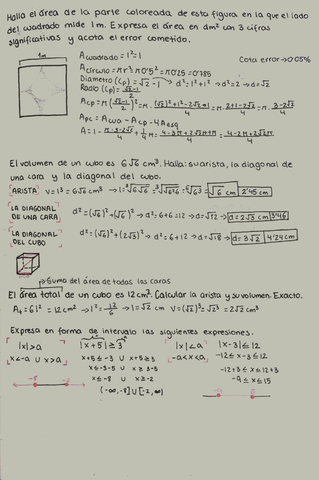 Halla el área de la parte coloreada de esta figura en la que el lado
del cuadrado mide 1m. Expresa el área en dm² con 3 cifras
significativas y acota el error cometido.
1m
A cuadrado = 1² = 1
Cota error → 0'05%
A círculo = πr² = π0'5² = π0'25 = 0'785
Diámetro (Cp) = √2 - 1 → d² = 1² + 1² → d² = 2 → d = √2
Radio (Cp) = (√2-1)/2
Acp = π((√2-1)/2)² = π·((√2)²+1²-2√2·1)/4 = π·(2+1-2√2)/4 = π·(3-2√2)/4
Apc = A cua - Acp - 4 A esq
A = 1 - π·(3-2√2)/4 + (1/4)π = (4-3π+2√2π+π)/4 = (4-2π+2√2π)/4
El volumen de un cubo es 6√6 cm³. Halla: su arista, la diagonal de
una cara y la diagonal del cubo.
ARISTA V = l³ = 6√6 cm³ → l = ∛(6√6) = ∛(√(6²·6)) = ⁶√(6³) = √6 cm 2'45 cm
LA DIAGONAL DE UNA CARA d² = (√6)² + (√6)² → d² = 6+6 = 12 → d = √12 → d = 2√3 cm 3'46
LA DIAGONAL DEL CUBO d² = (√6)² + (2√3)² → d² = 6+12 → d = √18 → d = 3√2 4'24 cm
Suma del área de todas las caras
El área total de un cubo es 12 cm². Calcular la arista y su volumen. Exacto.
At = 6l² = 12 cm² → l² = 12/6 → l = √2 cm V = (√2)³ = √2³ = 2√2 cm³
Expresa en forma de intervalo las siguientes expresiones.
|x| > a |x+5| ≥ 3 |x| < a |x-3| ≤ 12
x < -a ∪ x > a x+5 ≤ -3 ∪ x+5 ≥ 3 -a < x < a -12 ≤ x-3 ≤ 12
x ≤ -3-5 ∪ x ≥ 3-5 -12+3 ≤ x ≤ 12+3
x ≤ -8 ∪ x ≥ -2 -9 ≤ x ≤ 15
(-∞,-8] ∪ [-2,∞)
-8 -2